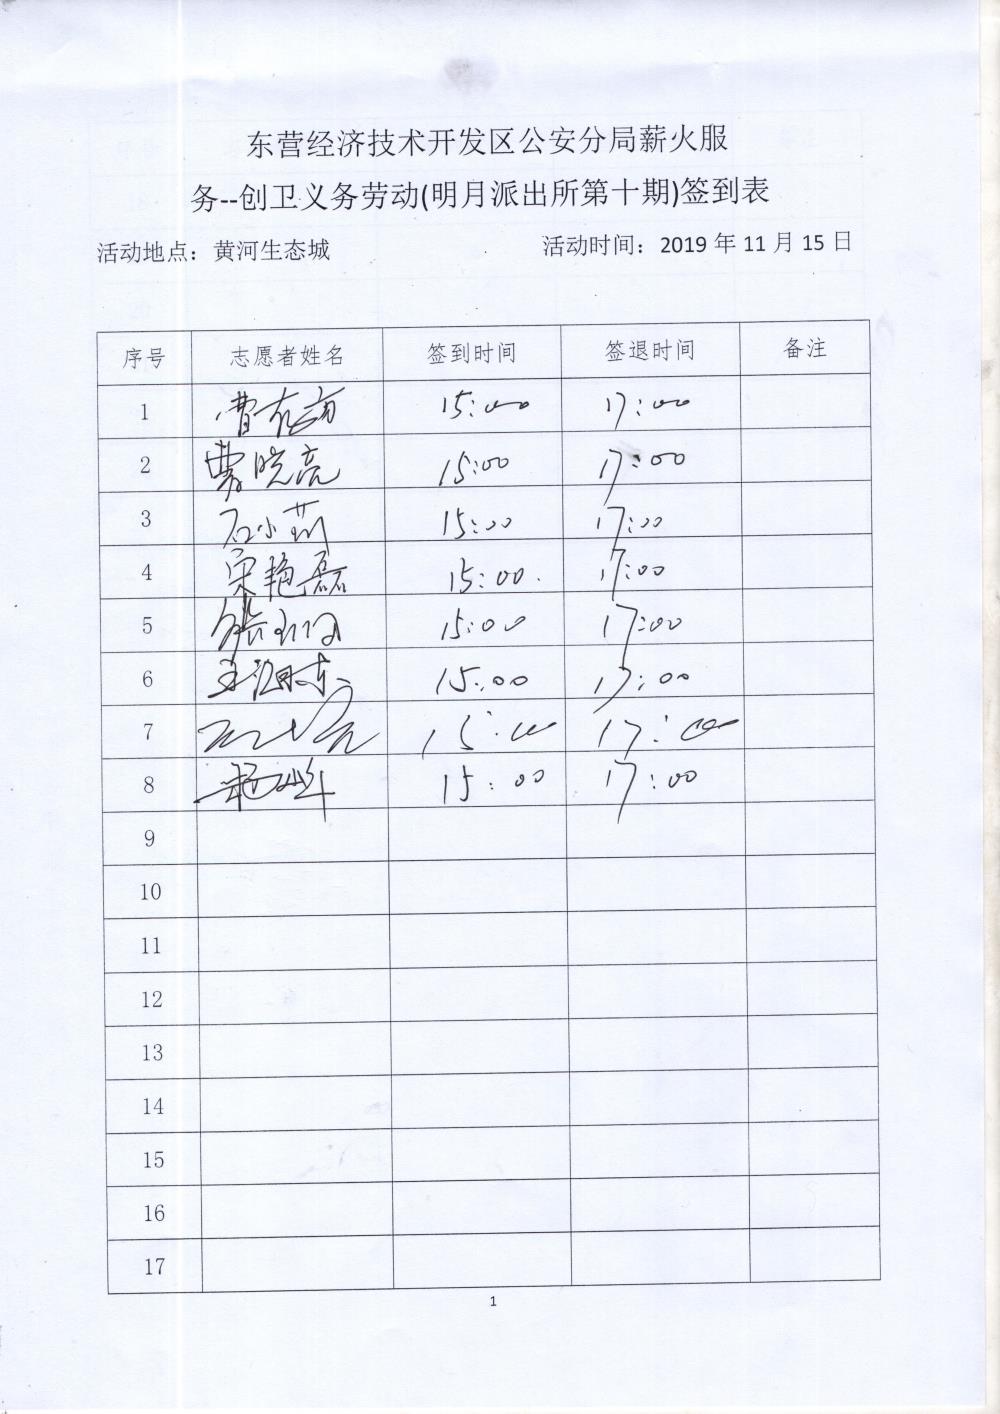 东营经济技术开发区公安分局薪火服
务--创卫义务劳动(明月派出所第十期)签到表
活动地点：黄河生态城 活动时间：2019 年 11 月 15 日
序号 志愿者姓名 签到时间 签退时间 备注
1 15:00 17:00
2 曹晓亮 15:00 17:00
3 石小莉 15:00 17:00
4 宋艳磊 15:00. 17:00
5 15:00 17:00
6 15:00 17:00
7 15:00 17:00
8 15:00 17:00
9
10
11
12
13
14
15
16
17
1